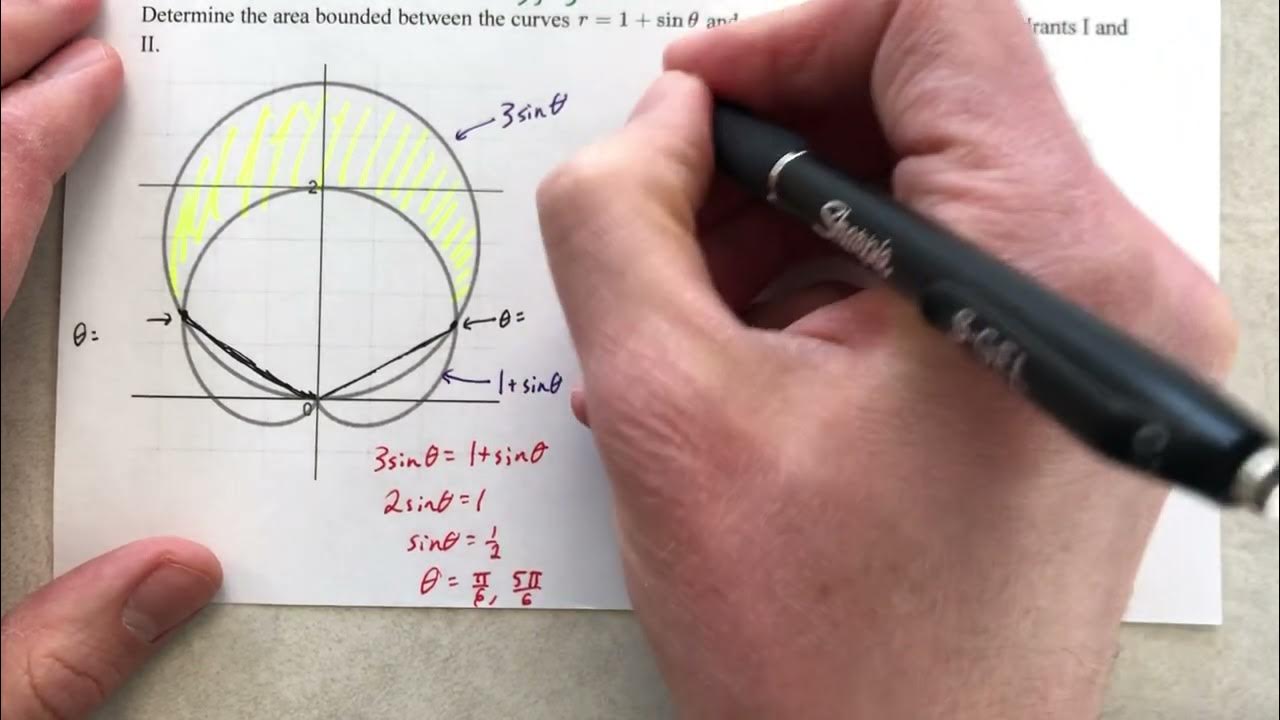 Determine the area bounded between the curves r = 1 + sin θ and
rants I and
II.
3sinθ
2
θ=
θ=
1+sinθ
0
3sinθ = 1+sinθ
2sinθ = 1
sinθ = 1/2
θ = π/6, 5π/6
Sharpie
S-GEL